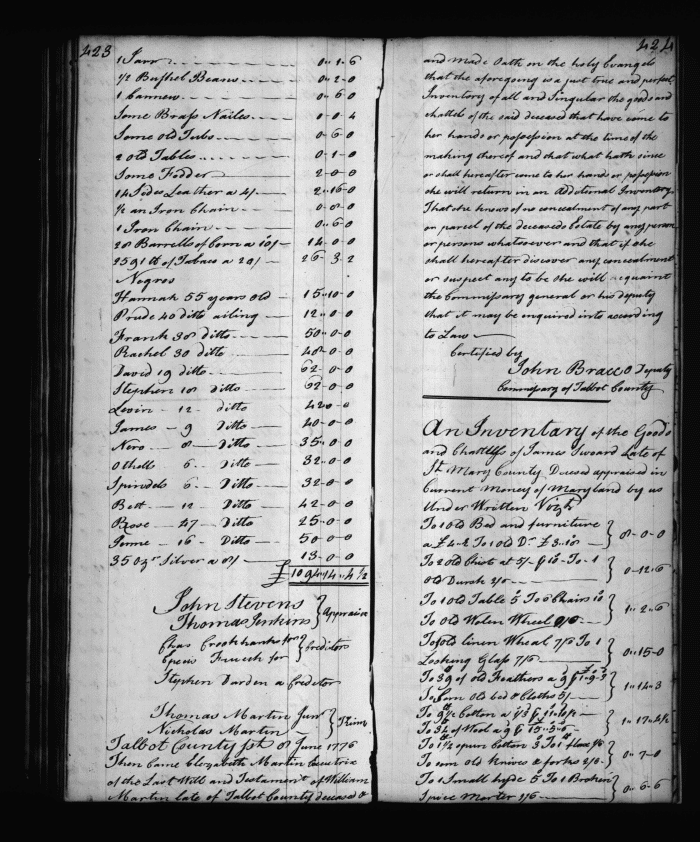 423
1 Jarr 0..1..6
1/2 Bushel Beans 0..2..0
1 0..6..0
Some Brass Nailes 0..0..4
Some old Tubs 0..6..0
2 old Tables 0..1..0
Some Fodder 2..0..0
14 Sides Leather a 4/ 2..16..0
1/2 an Iron Chain 0..0
1 Iron Chain 0..6..0
28 Barrells of Corn a 10/ 14..0..0
2591 lb of Tobaco a 20/ 26..3..2
Negros
Hannah 55 years old 15..10..0
Prude 40 ditto ailing 12..0..0
Frank 38 ditto 50..0..0
Rachel 30 ditto 40..0..0
David 19 ditto 62..0..0
Stephen 18 ditto 62..0..0
Levin 12 ditto 42..0..0
James 9 ditto 40..0..0
Nero 8 Ditto 35..0..0
Othello 6 Ditto 32..0..0
6 Ditto 32..0..0
Bett 12 Ditto 42..0..0
Rose 47 Ditto 25..0..0
16 Ditto 50..0..0
35 oz Silver a 8/ 13..0..0
£ 1094..14..4 1/2
John Stevens
Thomas Jenkins } Appraise
Chas Crookshanks for
French for } Creditors
Stephen Darden a Creditor
Thomas Martin Junr
Nicholas Martin
Talbot County sst 8 June 1776
Then came Elizabeth Martin Executrix
of the Last Will and Testament of William
Martin late of Talbot County deceased &
424
and Made Oath on the holy Evangels
that the aforegoing is a just true and perfect
Inventory of all and Singular the goods and
chattels of the said deceased that have come to
her hands or possession at the time of the
making thereof and that what hath since
or shall hereafter come to her hands or possession
she will return in an Additional Inventory
That she knows of no concealment of any part
or parcel of the deceaseds Estate by any person
or persons whatsoever and that if she
shall hereafter discover any concealment
or suspect any to be she will acquaint
the Commissary general or his deputy
that it may be enquired into according
to Law
Certified by
John Bracco Deputy
Commissary of Talbot County
An Inventory of the Goods
and Chattles of James Late of
St. Marys County Deceased appraised in
Current Money of Maryland by us
Under Written Vizt
To 1 old Bed and furniture
a £4..2 To 1 old Do £3..18 } 8..0..0
To 2 old Chist at 5/ To 1
old 2/0 } 0..12..6
To 1 old Table 5 To 6 Chairs 10
To old Wolen Wheel } 1..2..6
To old linen Wheal 7/6 To 1
Looking Glass 7/6 } 0..15..0
To 38 of old Feathers a 9
To som old bed & Cloths 5/ } 1..14..3
To 9 1/2 Cotton a 1/3
To 3 of Wool a 9 } 1..17..4 1/2
To 1 1/2 spun Cotton 3 To 1
To som old Knives & forks 2/6 } 0..7..0
To 1 Small hyde 5 To 1 Broken
Spice Morter 1/6 } 0..6..6